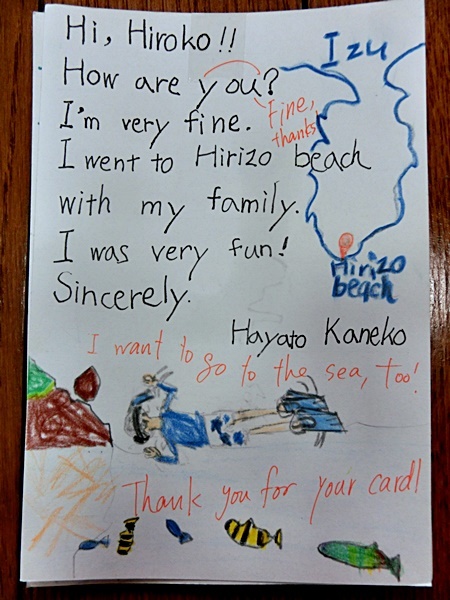 Hi, Hiroko!!
Izu
How are you?
Fine,
thanks
I'm very fine.
I went to Hirizo beach
with my family.
I was very fun!
Hirizo
beach
Sincerely.
Hayato Kaneko
I want to go to the sea, too!
Thank you for your card!